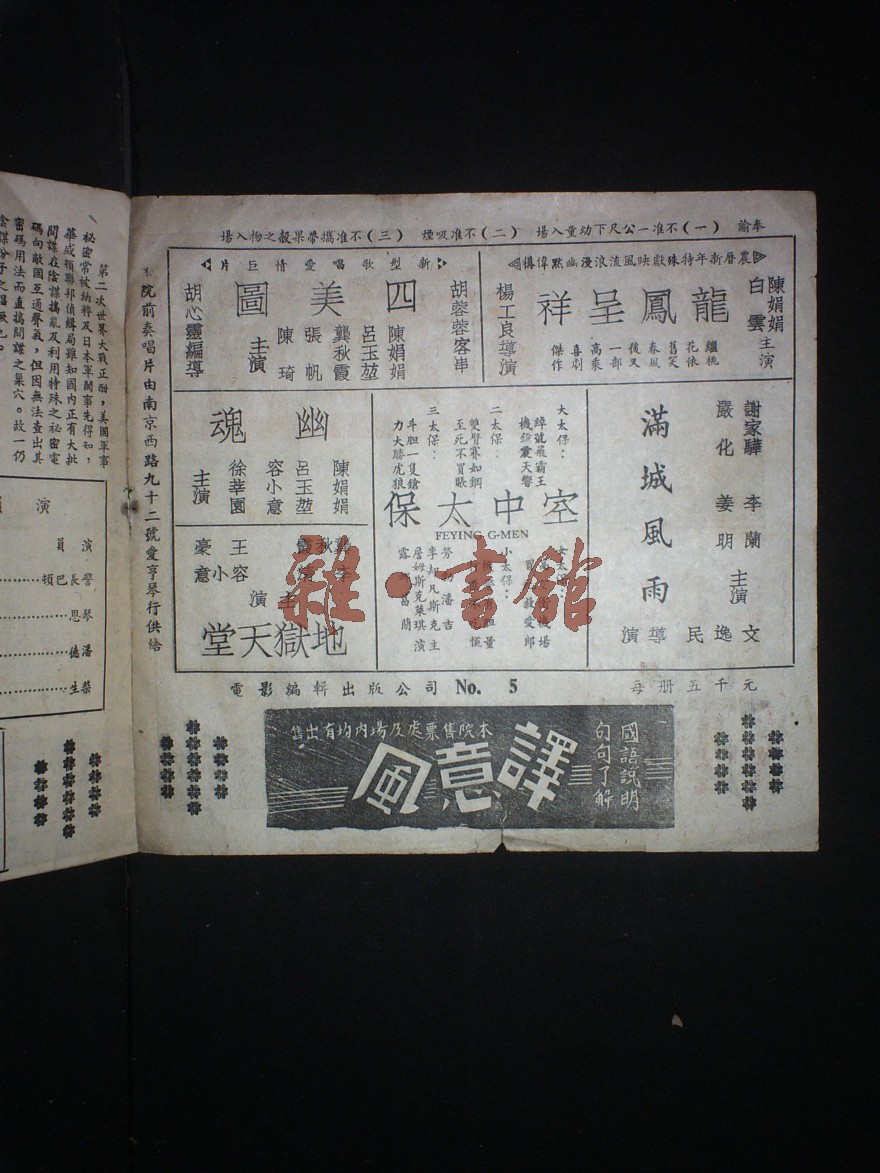 奉諭 (一)不准一公尺下幼童入場 (二)不准吸煙 (三)不准攜帶果殼之物入場
農曆新年特殊獻映風流浪漫幽默偉構
陳娟娟
白雲
主演
龍鳳呈祥
繼桃
花依
舊笑
春風
後又
一部
高乘
喜劇
傑作
楊工良導演
新型歌唱愛情巨片
胡蓉蓉客串
四美圖
陳娟娟
呂玉堃
龔秋霞
張帆
陳琦
主演
胡心靈編導
謝家驊
嚴化
李蘭
姜明
主演
滿城風雨
文逸民導演
大太保:
綽號飛霸王
二太保:
雙臂賽如鋼
至死不買賬
三太保:
斗胆一隻鎗
力大勝虎狼
空中太保
FEYING G-MEN
勞勃潘吉
詹姆斯克萊琪
主演
幽魂
陳娟娟
呂玉堃
容小意
徐莘園
主演
王豪
容小意
主演
地獄天堂
電影編輯出版公司 No. 5 每册五千元
本院售票處及場內均有出售
譯意風
國語說明
句句了解
院前奏唱片由南京西路九十二號愛亨琴行供給
第二次世界大戰正酣,美國軍事
秘密常被納粹及日本軍閥事先得知,
華盛頓聯邦偵緝局雖知國內正有大批
間諜在陰謀搗亂及利用特殊之秘密電
碼向敵國互通聲氣,但因無法查出其
密碼用法而直搗間諜之巢穴。故一仍
演
演員
警長巴頓
琴恩
潘德
蔡生